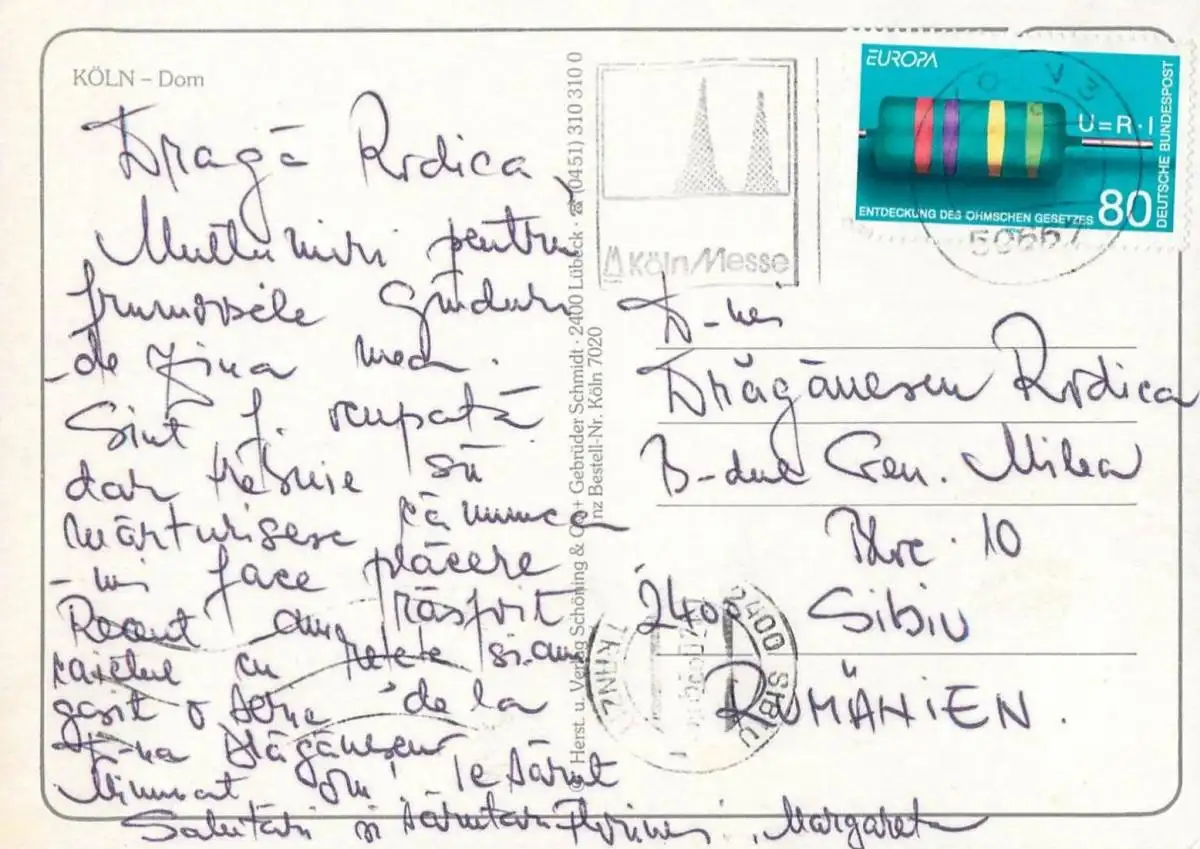 KÖLN – Dom
Dragă Rodica
Mulțumiri pentru
frumoasele gînduri
de ziua mea.
Sint f. ocupată
dar trebuie să
mărturisesc că munca
-mi face plăcere
Recent am răsfoit
caietul cu rețete și am
găsit o serie de la
D-na Drăgănescu
Minunat om! Te sărut
Salutări și sărutări Margareta
Herst. u. Verlag Schöning & Co + Gebrüder Schmidt · 2400 Lübeck · ☎ (0451) 310 310 0
nz Bestell-Nr. Köln 7020
KölnMesse
EUROPA
U=R·I
ENTDECKUNG DES OHMSCHEN GESETZES 80
DEUTSCHE BUNDESPOST
50667
D-nei
Drăgănescu Rodica
B-dul Gen. Milea
Bloc. 10
2400 Sibiu
RUMÄNIEN.
2400 SIBIU